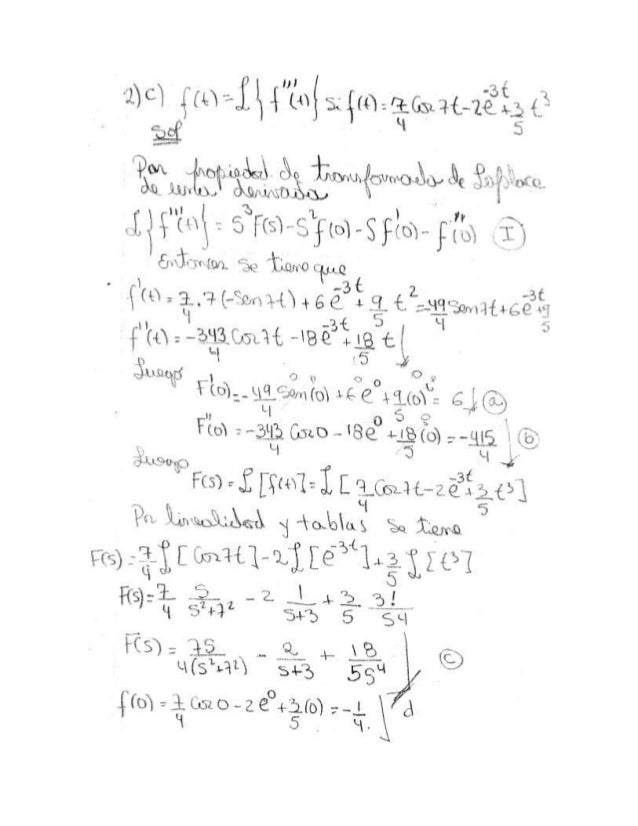 2) c) f(t) = ℒ{f'''(t)} si f(t) = 7/4 Cos 7t - 2e^{-3t} + 3/5 t^3
Sol
Por propiedad de transformada de Laplace
de una derivada
ℒ{f'''(t)} = S^3 F(s) - S^2 f(0) - S f'(0) - f''(0) (I)
Entonces se tiene que
f'(t) = 7/4 . 7(-Sen 7t) + 6e^{-3t} + 9/5 t^2 = -49/4 Sen 7t + 6e^{-3t} + 9/5
f''(t) = -343/4 Cos 7t - 18e^{-3t} + 18/5 t
Luego
F'(0) = -49/4 Sen(0) + 6e^0 + 9/5 (0)^2 = 6 (a)
F''(0) = -343/4 Cos 0 - 18e^0 + 18/5 (0) = -415/4 (b)
Luego
F(s) = ℒ[f(t)] = ℒ[7/4 Cos 7t - 2e^{-3t} + 3/5 t^3]
Por linealidad y tablas se tiene
F(s) = 7/4 ℒ[Cos 7t] - 2ℒ[e^{-3t}] + 3/5 ℒ[t^3]
F(s) = 7/4 S/(S^2+7^2) - 2 1/(S+3) + 3/5 3!/S^4
F(s) = 7S/(4(S^2+7^2)) - 2/(S+3) + 18/(5S^4) (c)
f(0) = 7/4 Cos 0 - 2e^0 + 3/5 (0) = -1/4. d